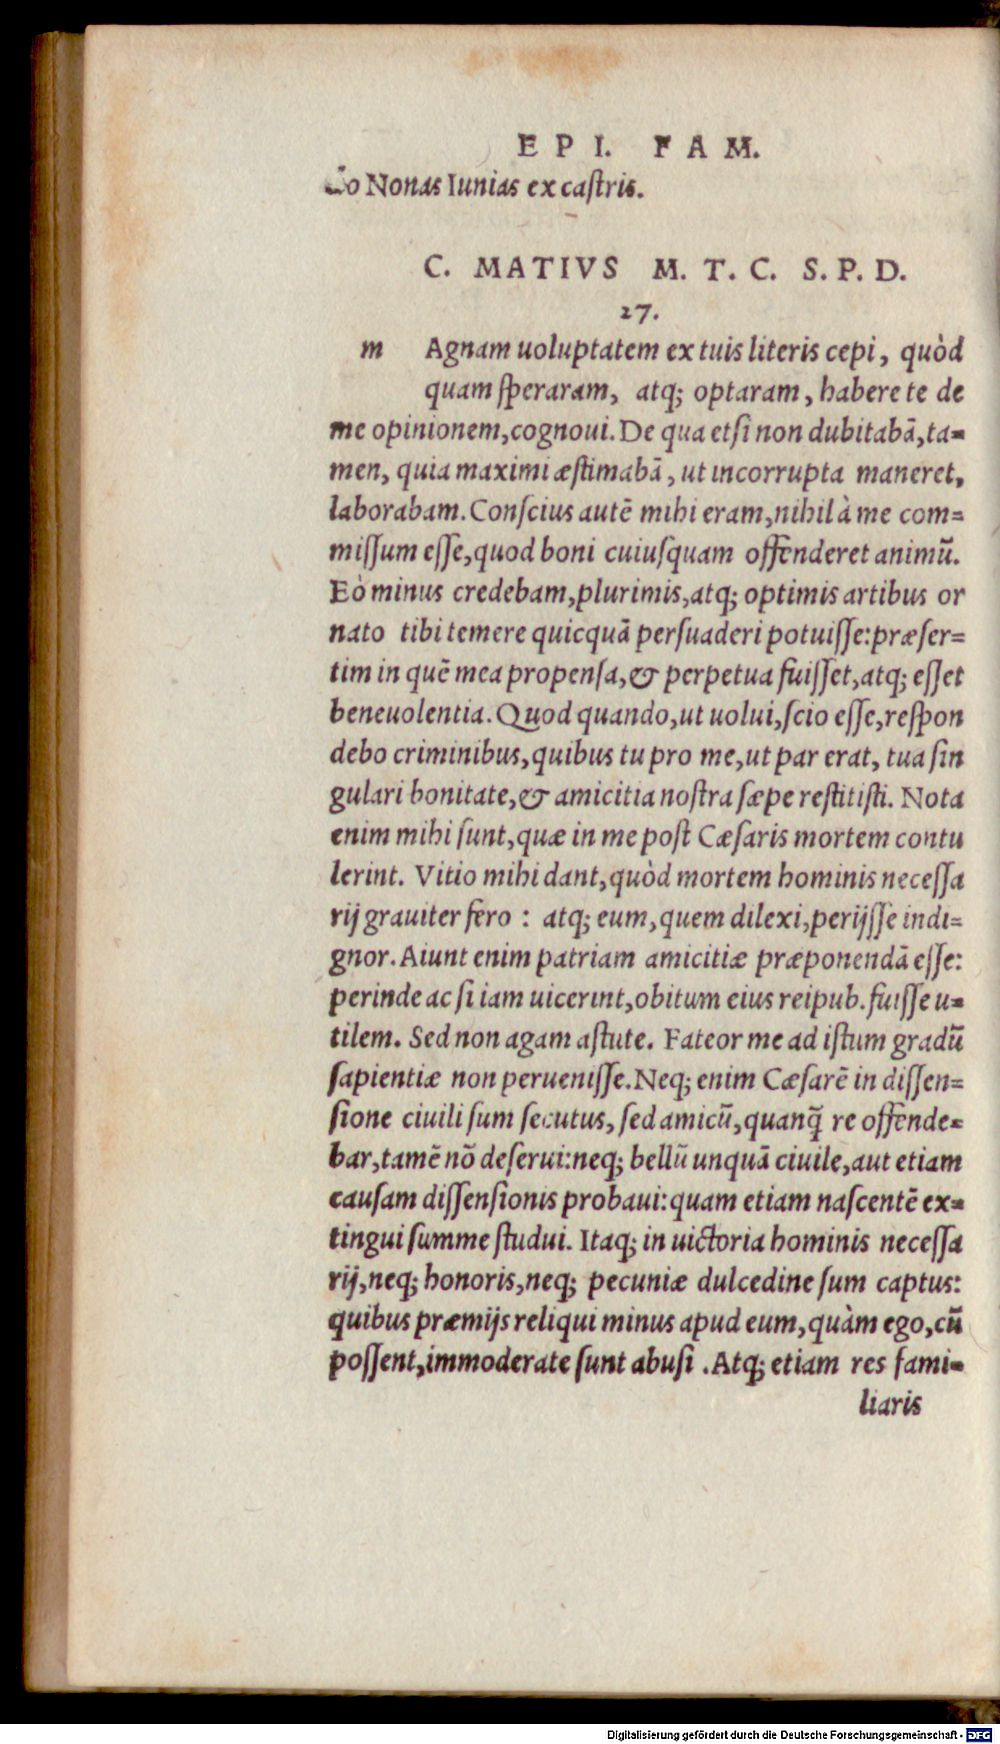 EPI. FAM.
do Nonas Iunias ex castris.
C. MATIVS M. T. C. S. P. D.
27.
m Agnam uoluptatem ex tuis literis cepi, quòd
quam ſperaram, atq; optaram, habere te de
me opinionem, cognoui. De qua etſi non dubitabā, ta=
men, quia maximi æſtimabā, ut incorrupta maneret,
laborabam. Conſcius autē mihi eram, nihil à me com=
miſſum eſſe, quod boni cuiuſquam offenderet animū.
Eò minus credebam, plurimis, atq; optimis artibus or
nato tibi temere quicquā perſuaderi potuiſſe: præſer=
tim in quē mea propenſa, & perpetua fuiſſet, atq; eſſet
beneuolentia. Quod quando, ut uolui, ſcio eſſe, reſpon
debo criminibus, quibus tu pro me, ut par erat, tua ſin
gulari bonitate, & amicitia noſtra ſæpe reſtitiſti. Nota
enim mihi ſunt, quæ in me poſt Cæſaris mortem contu
lerint. Vitio mihi dant, quòd mortem hominis neceſſa
rij grauiter fero : atq; eum, quem dilexi, perijſſe indi=
gnor. Aiunt enim patriam amicitiæ præponendā eſſe:
perinde ac ſi iam uicerint, obitum eius reipub. fuiſſe u=
tilem. Sed non agam aſtute. Fateor me ad iſtum gradū
ſapientiæ non perueniſſe. Neq; enim Cæſarē in diſſen=
ſione ciuili ſum ſecutus, ſed amicū, quanq̃ re offende=
bar, tamē nō deſerui: neq; bellū unquā ciuile, aut etiam
cauſam diſſenſionis probaui: quam etiam naſcentē ex=
tingui ſumme ſtudui. Itaq; in uictoria hominis neceſſa
rij, neq; honoris, neq; pecuniæ dulcedine ſum captus:
quibus præmijs reliqui minus apud eum, quàm ego, cū
poſſent, immoderate ſunt abuſi . Atq; etiam res fami=
liaris
Digitalisierung gefördert durch die Deutsche Forschungsgemeinschaft - DFG